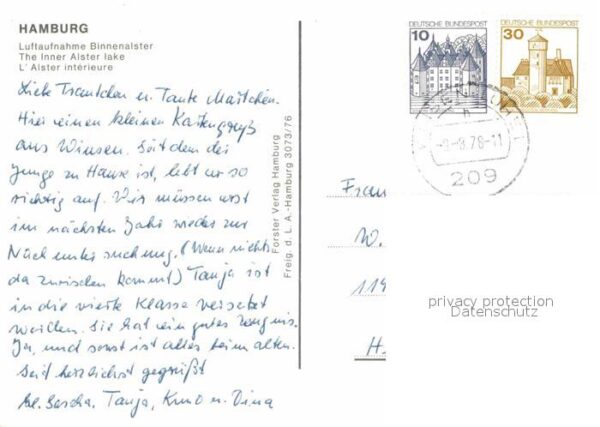 HAMBURG
Luftaufnahme Binnenalster
The Inner Alster lake
L'Alster intérieure
Liebe Trautchen u. Tante Martchen.
Hier einen kleinen Kartengruß
aus Winsen. Seit dem der
Junge zu Hause ist, lebt er so
richtig auf. Wir müssen erst
im nächsten Jahr wieder zur
Nachuntersuchung. (Wenn nichts
dazwischen kommt) Tanja ist
in die vierte Klasse versetzt
worden. Sie hat ein gutes Zeugnis.
Ja, und sonst ist alles beim alten.
Seid herzlichst gegrüßt
Sascha, Tanja, Kuno u. Dina
Forster Verlag Hamburg
Freig. d. L. A.-Hamburg 3073/76
DEUTSCHE BUNDESPOST
10
DEUTSCHE BUNDESPOST
30
9.78-11
209
Frau
W.
H
privacy protection
Datenschutz